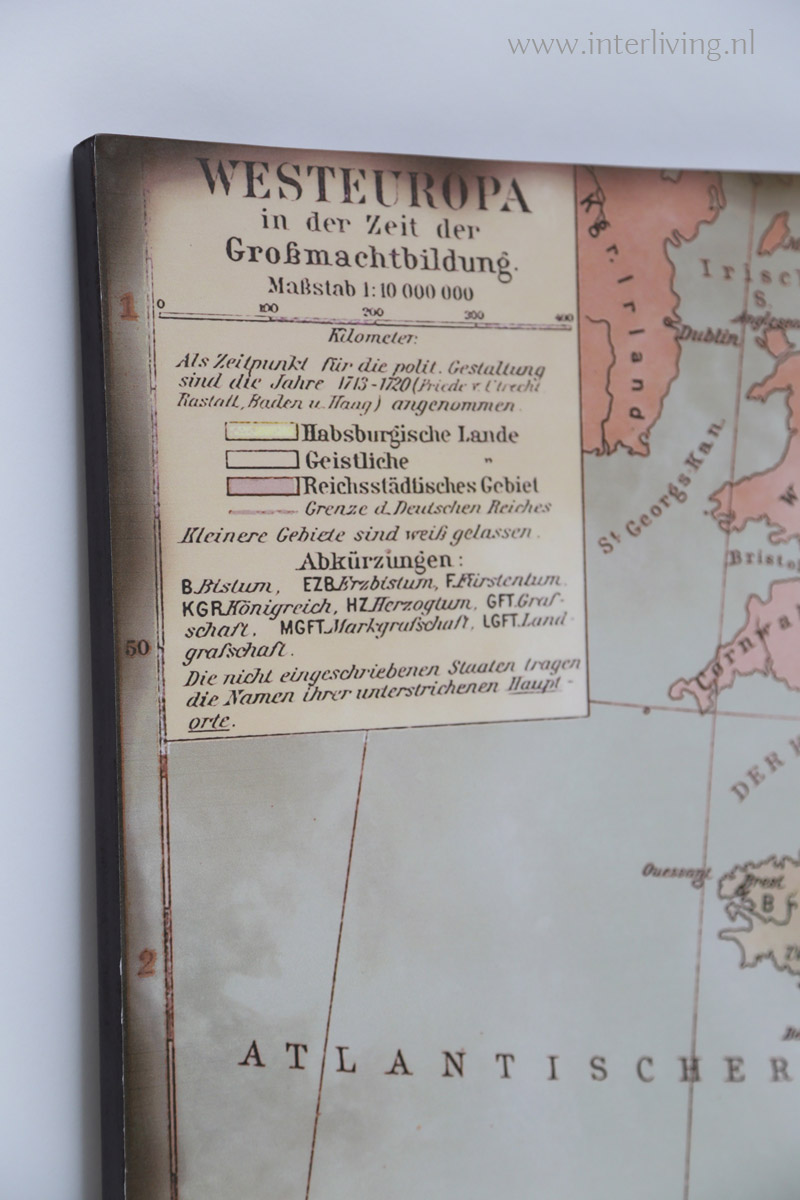 www.interliving.nl
WESTEUROPA
in der Zeit der
Großmachtbildung.
Maßstab 1:10 000 000
0 100 200 300 400
Kilometer:
Als Zeitpunkt für die polit. Gestaltung
sind die Jahre 1713-1720 (Friede v. Utrecht
Rastatt, Baden u. Haag) angenommen.
Habsburgische Lande
Geistliche "
Reichsstädtisches Gebiet
Grenze d. Deutschen Reiches
Kleinere Gebiete sind weiß gelassen.
Abkürzungen:
B. Bistum, EZB. Erzbistum, F. Fürstentum.
KGR. Königreich, HZ. Herzogtum, GFT. Graf-
schaft, MGFT. Markgrafschaft, LGFT. Land-
grafschaft.
Die nicht eingeschriebenen Staaten tragen
die Namen ihrer unterstrichenen Haupt-
orte.
1
50
2
Kgr. Irland
Irisch
S.
Dublin
St Georgs-Kan.
W
Bristo
Cornwal
DER K
Ouessant
Brest
B
ATLANTISCHER